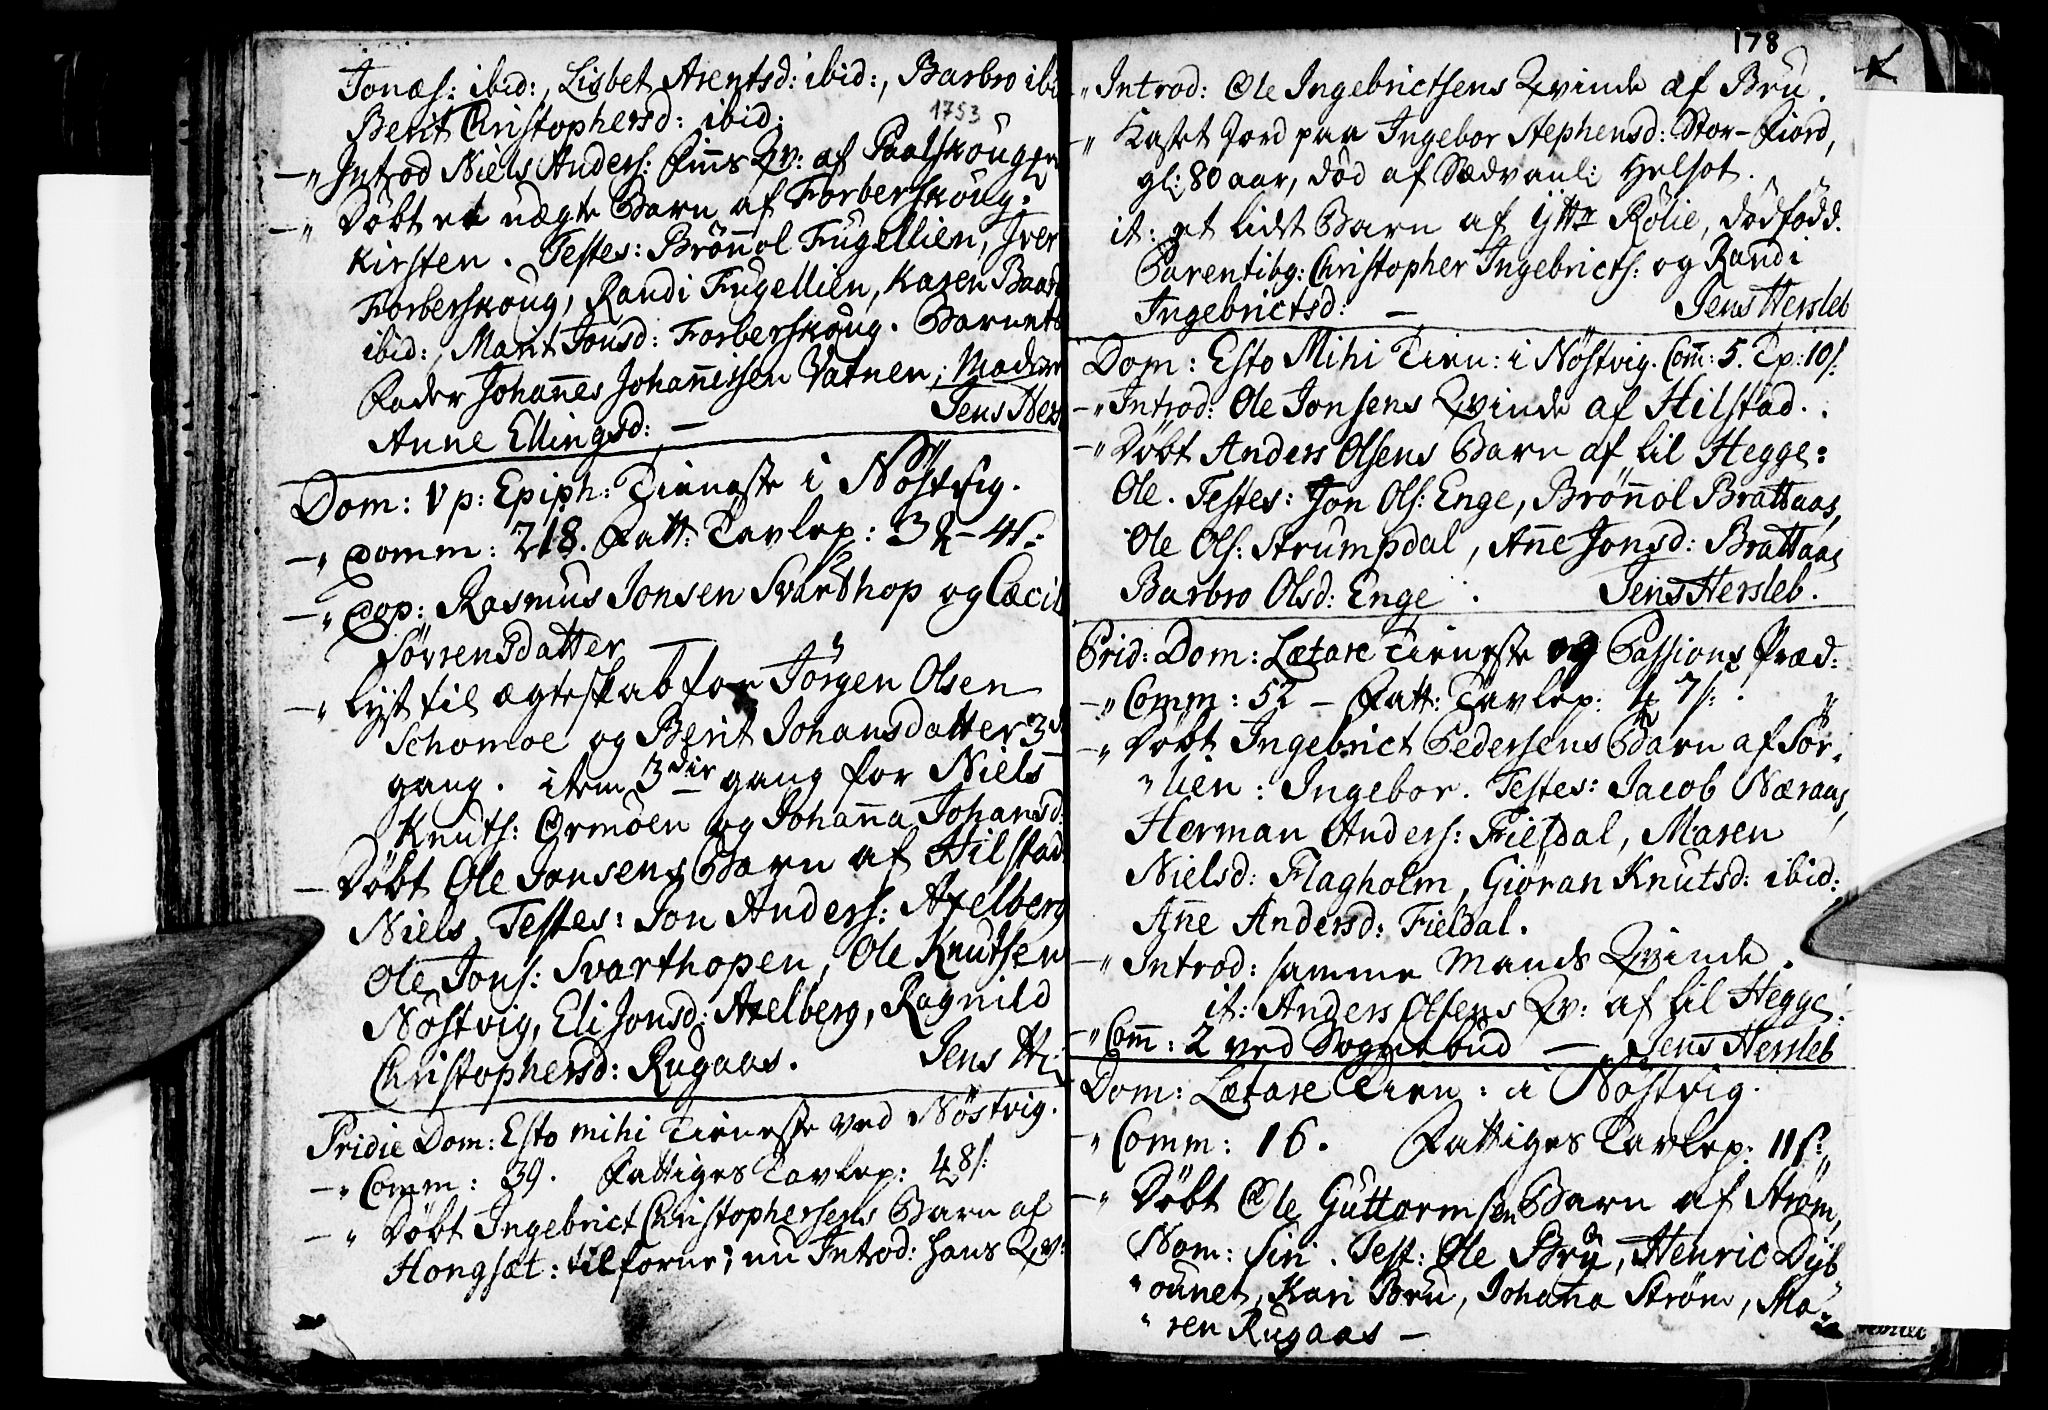 Jonæs: ibid:, Lisbet Arentsd: ibid:, Barbro ibi
Berit Christophersd: ibid:
1753
Introd Niels Anders: Finns Qv: af Paalskoug
Döbt et uægte Barn af Forberskoug:
Kirsten. Testes: Brönnol Fugellien, Iver
Forberskoug, Randi Fugellien, Karen Baar
ibid:, Marit Jonsd: Forberskoug. Barnets
Fader Johannes Johannissen Vatnen; Moder
Anne Ellingsd: — Jens Hers
Dom: V p: Epiph: Tieneste i Nöstvig.
Comm: 218. Fatt: Tavlep: 3 -4 s:
Cop: Rasmus Jonsen Svarthop og Cæcil
Sörrensdatter
lyst til ægteskab for Jörgen Olsen
Schomoe og Berit Johansdatter 3
gang. item 3die gang for Niels
Knuts: Ormöen og Johanna Johansd:
Döbt Ole Jonsens Barn af Hilstad
Niels. Testes: Jon Anders: Axelberg
Ole Jons: Svarthopen, Ole Knutsen
Nöstvig, Eli Jonsd: Axelberg, Ragnild
Christophersd: Rugaas. Jens H
Pridie Dom: Esto mihi Tieneste ved Nöstvig.
Comm: 39. Fattiges Tavlep: 48 s:
Döbt Ingebrict Christophersens Barn af
Hongsæt: tilforne; nu Introd: hans Qv:
178
Introd: Ole Ingebrictsens Qvinde af Bru.
Kastet Jord paa Ingebor Stephensd: Stor-Fiord,
gl: 80 aar, död af Sædvanli: Helsot.
it: et lidet Barn af Ytter Rölie, dödfödd.
Parentibg: Christopher Ingebricts: og Randi
Ingebrictsd: — Jens Hersleb
Dom: Esto Mihi Tien: i Nöstvig. Comm: 5. Tp: 10 s:
Introd: Ole Jonsens Qvinde af Hilstad.
Döbt Anders Olsens Barn af lil Hegge:
Ole. Testes: Jon Ols: Enge, Brönnol Brattaas,
Ole Ols: Strumpdal, Anne Jonsd: Brattaas
Barbro Olsd: Enge. Jens Hersleb.
Prid: Dom: Lætare Tieneste og Passions Præd:
Comm: 52 — Fatt: Tavlep: 7 s:
Döbt Ingebrict Pedersens Barn af Sör-
lien: Ingebor. Testes: Jacob Næraas,
Herman Anders: Fieldal, Maren
Nielsd: Flagholm, Giöran Knutsd: ibid:
Anne Andersd: Fieldal.
Introd: samme Mands Qvinde.
it: Anders Olsens Qv: af lil Hegge:
Comm: 2 ved Sognebud — Jens Hersleb
Dom: Lætare Tien: i Nöstvig.
Comm: 16. Fattiges Tavlep: 11 s:
Döbt Ole Guttormsen Barn af Ström,
Nom: Siri. Test: Ole Bru, Henric Dyb
ounet, Kari Bru, Johanna Ström, Ma-
ren Rugaas —